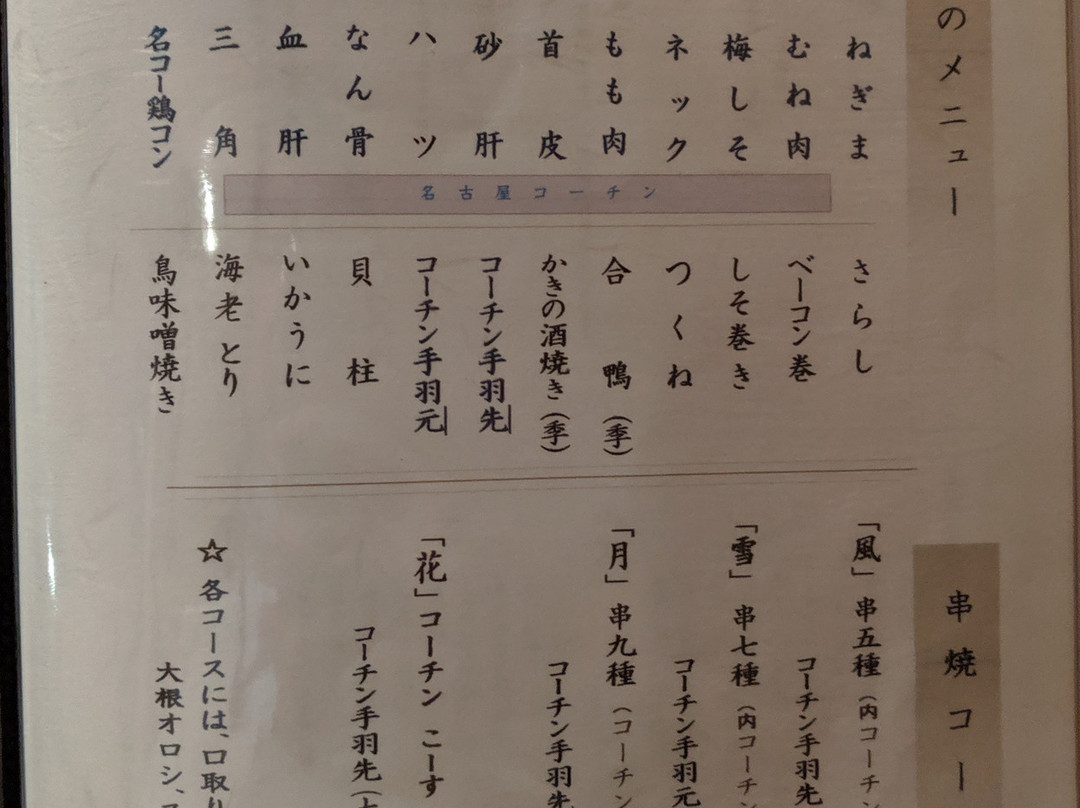 のメニュー
ねぎま
むね肉
梅しそ
ネック
もも肉
首皮
砂肝
ハツ
なん骨
血肝
三角
名コー鶏コン
名古屋コーチン
さらし
ベーコン巻
しそ巻き
つくね
合鴨(季)
かきの酒焼き(季)
コーチン手羽先
コーチン手羽元
貝柱
いかうに
海老とり
鳥味噌焼き
串焼コー
「風」串五種(内コーチ
コーチン手羽先
「雪」串七種(内コーチン
コーチン手羽元
「月」串九種(コーチン
コーチン手羽先
「花」コーチン こーす
コーチン手羽先(
☆ 各コースには、口取り
大根オロシ、